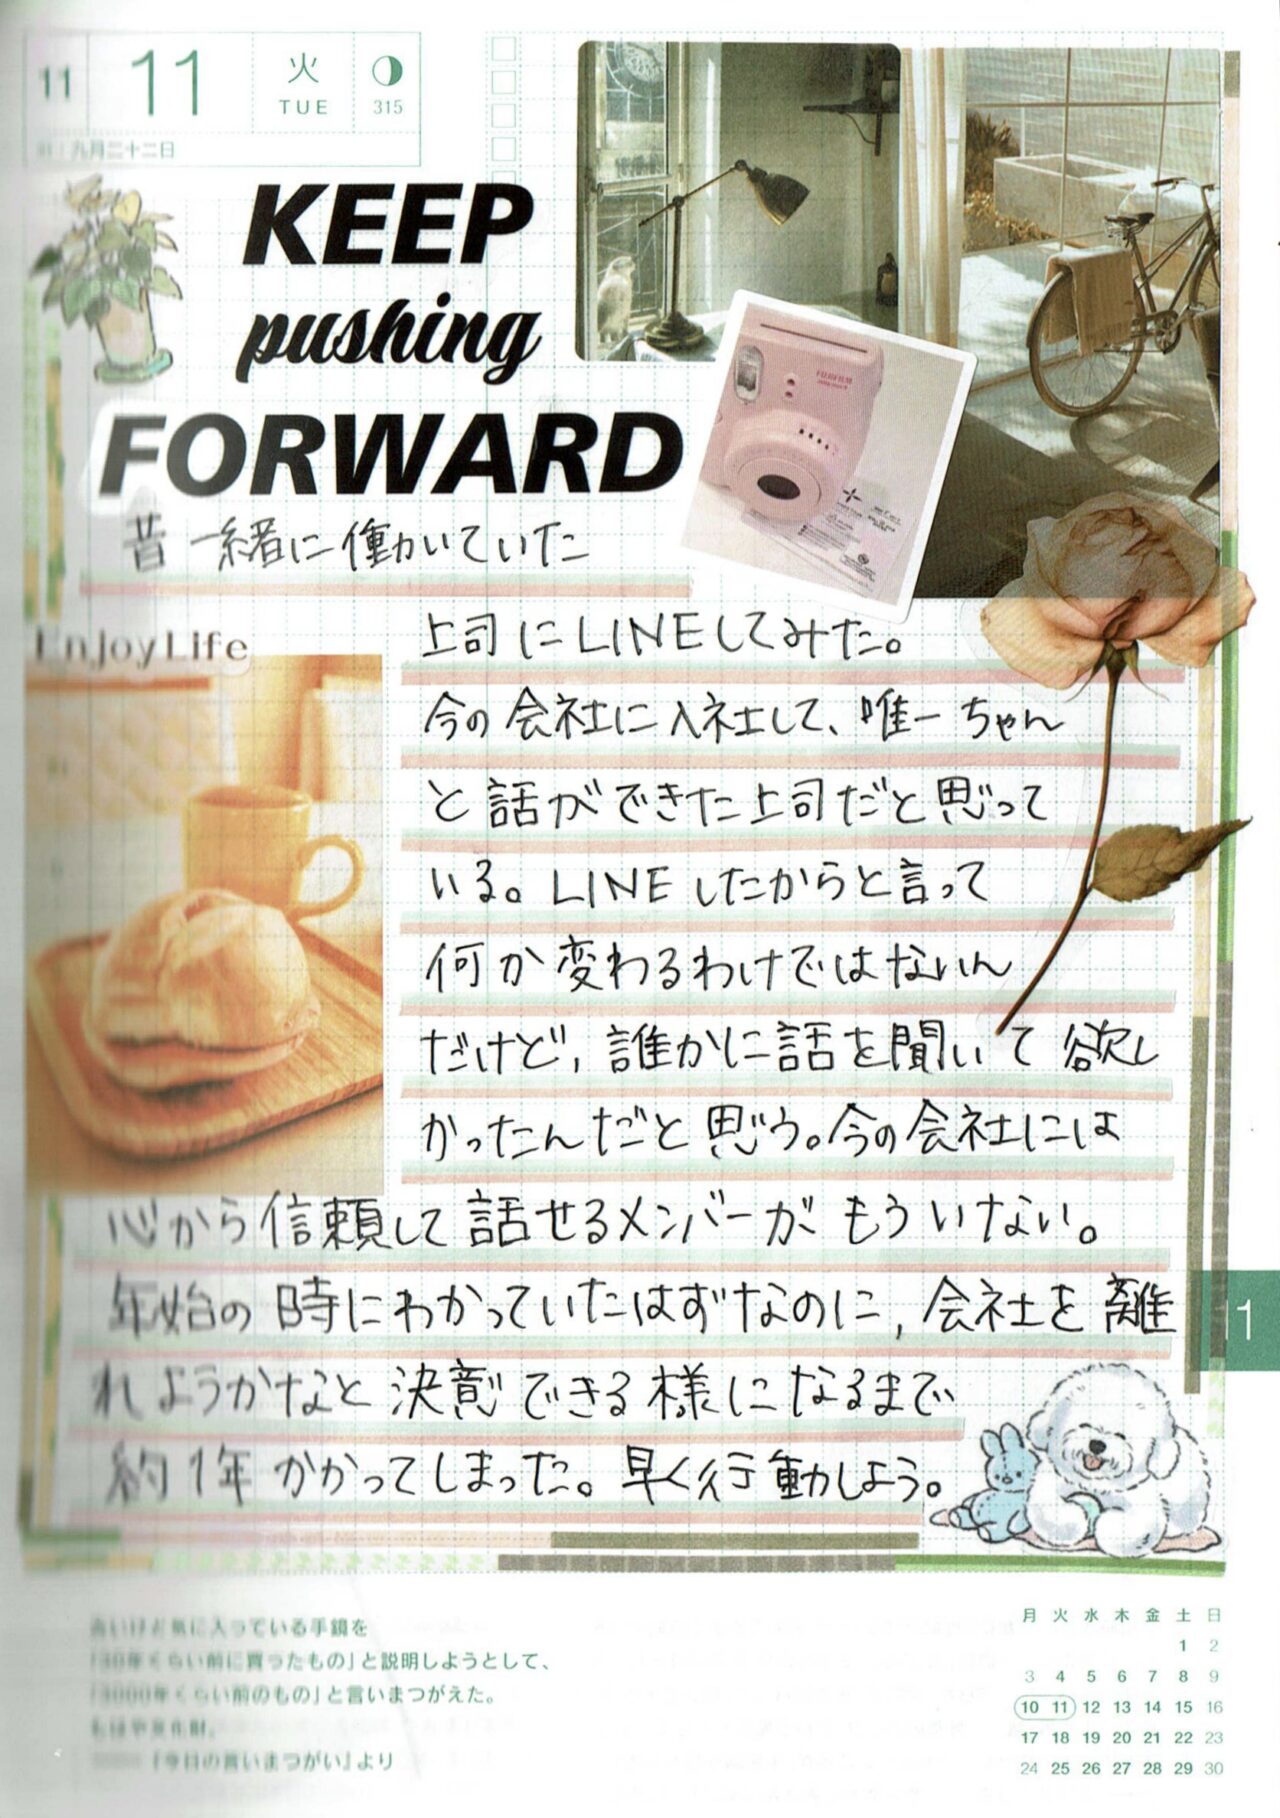 11
11
火
TUE
315
九月二十二日
KEEP
pushing
FORWARD
FUJIFILM
昔一緒に働いていた
Enjoy Life
上司にLINEしてみた。
今の会社に入社して、唯一ちゃん
と話ができた上司だと思って
いる。LINEしたからと言って
何か変わるわけではないん
だけど, 誰かに話を聞いて欲し
かったんだと思う。今の会社には
心から信頼して話せるメンバーがもういない。
年始の時にわかっていたはずなのに, 会社を離
れようかなと決意できる様になるまで
約1年かかってしまった。早く行動しよう。
11
古いけど気に入っている手鏡を
「30年くらい前に買ったもの」と説明しようとして、
「3000年くらい前のもの」と言いまつがえた。
もはや文化財。
『今日の言いまつがい』より
月 火 水 木 金 土 日
1 2
3 4 5 6 7 8 9
10 11 12 13 14 15 16
17 18 19 20 21 22 23
24 25 26 27 28 29 30